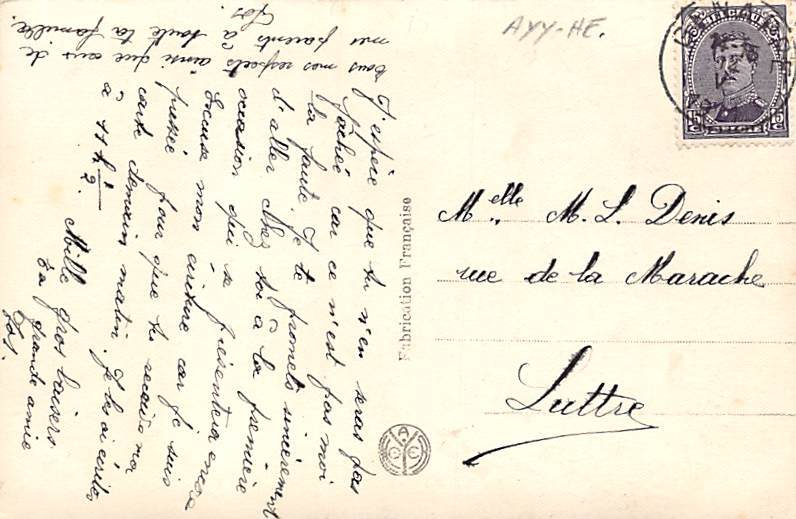 J'espère que tu n'en seras pas
fâchée car ce n'est pas moi
la faute. Je te promets sincèrement
d'aller chez toi à la première
occasion qui se présentera encore
Excuse mon écriture car je suis
pressée pour que tu recoives ma
carte demain matin. Je les ai écrites
à 11 h 1/2
Mille gros baisers
ta grande amie
tous mes respects ainsi que ceux de
mes parents à toute ta famille
AYY-HE.
BELGIQUE
15 c
BELGIË
Fabrication Française
Melle M. L. Denis
rue de la Marache
Luttre